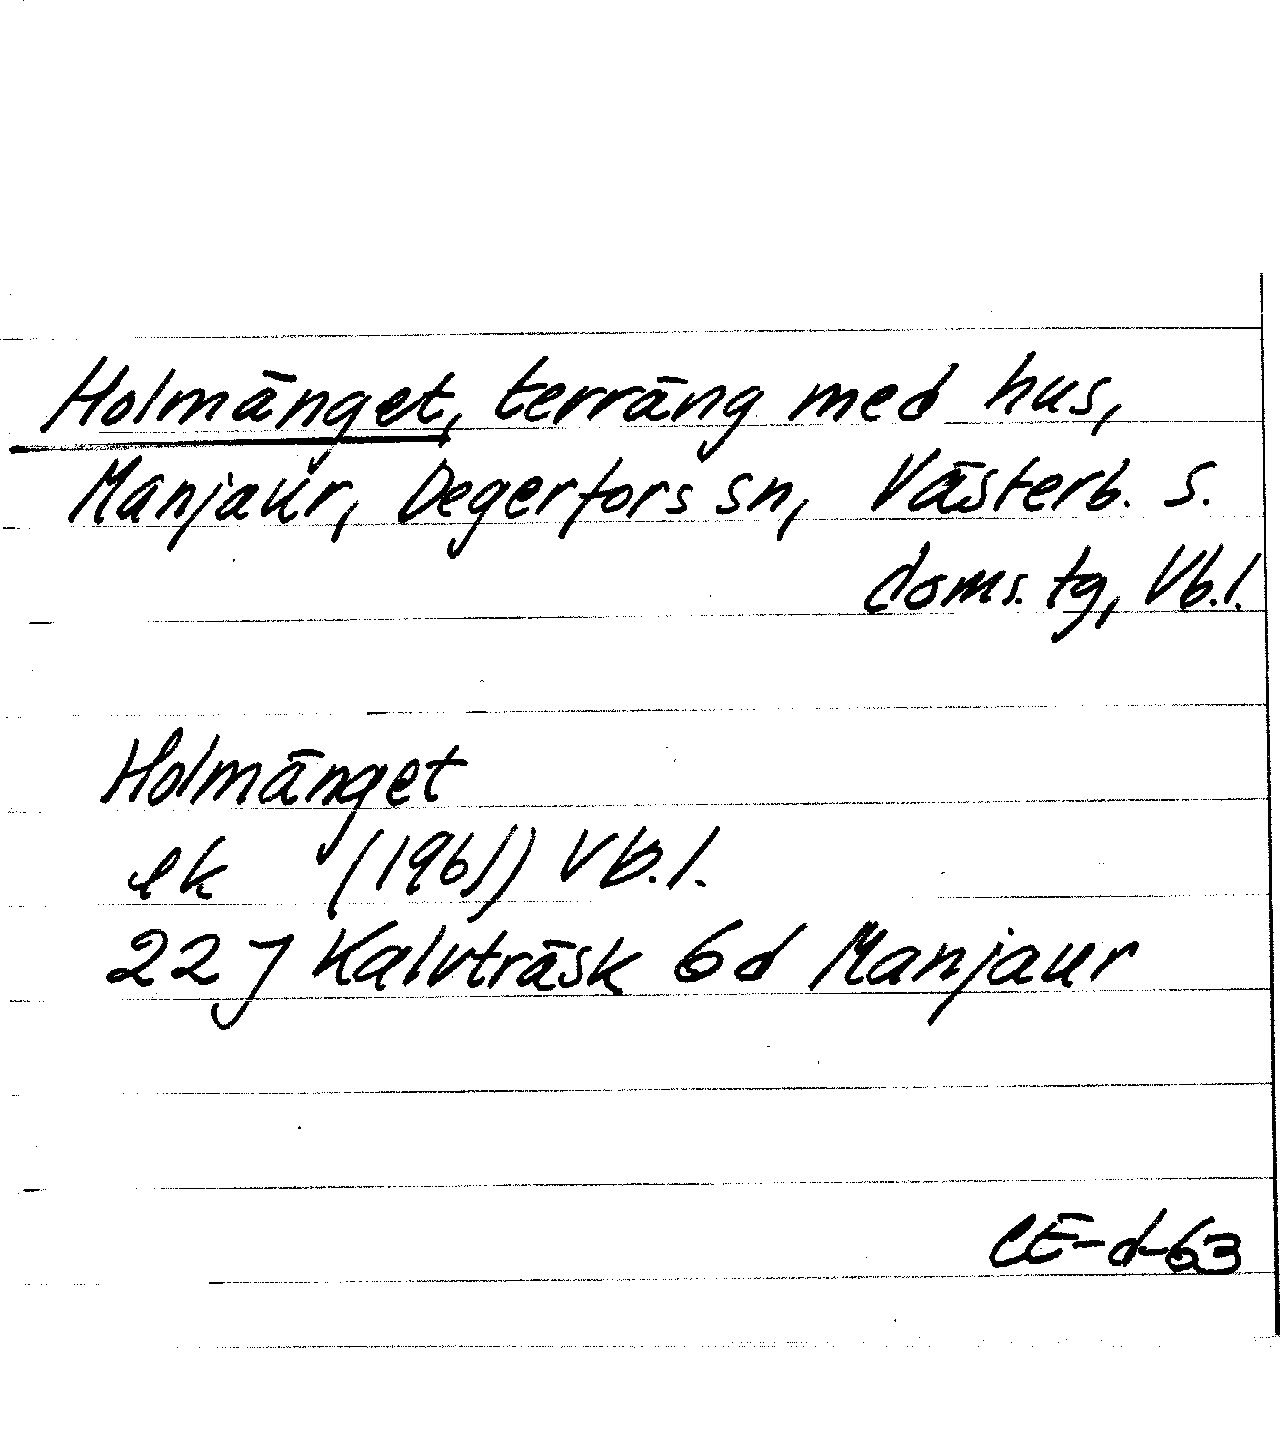 Holmänget, terräng med hus,
Manjaur, Degerfors sn, Västerb. s.
doms. tg, Vb.l.
Holmänget
ek (1961) Vb.l.
22 J Kalvträsk 6d Manjaur
CE-d-63